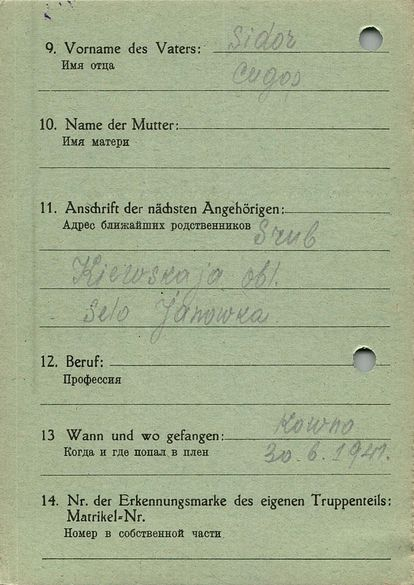 9. Vorname des Vaters: Sidor
Имя отца Сидор
10. Name der Mutter:
Имя матери
11. Anschrift der nächsten Angehörigen:
Адрес ближайших родственников Srub
Kiewskaja obl.
Selo Janowka
12. Beruf:
Профессия
13 Wann und wo gefangen: Kowno
Когда и где попал в плен 30.6.1941.
14. Nr. der Erkennungsmarke des eigenen Truppenteils:
Matrikel=Nr.
Номер в собственной части